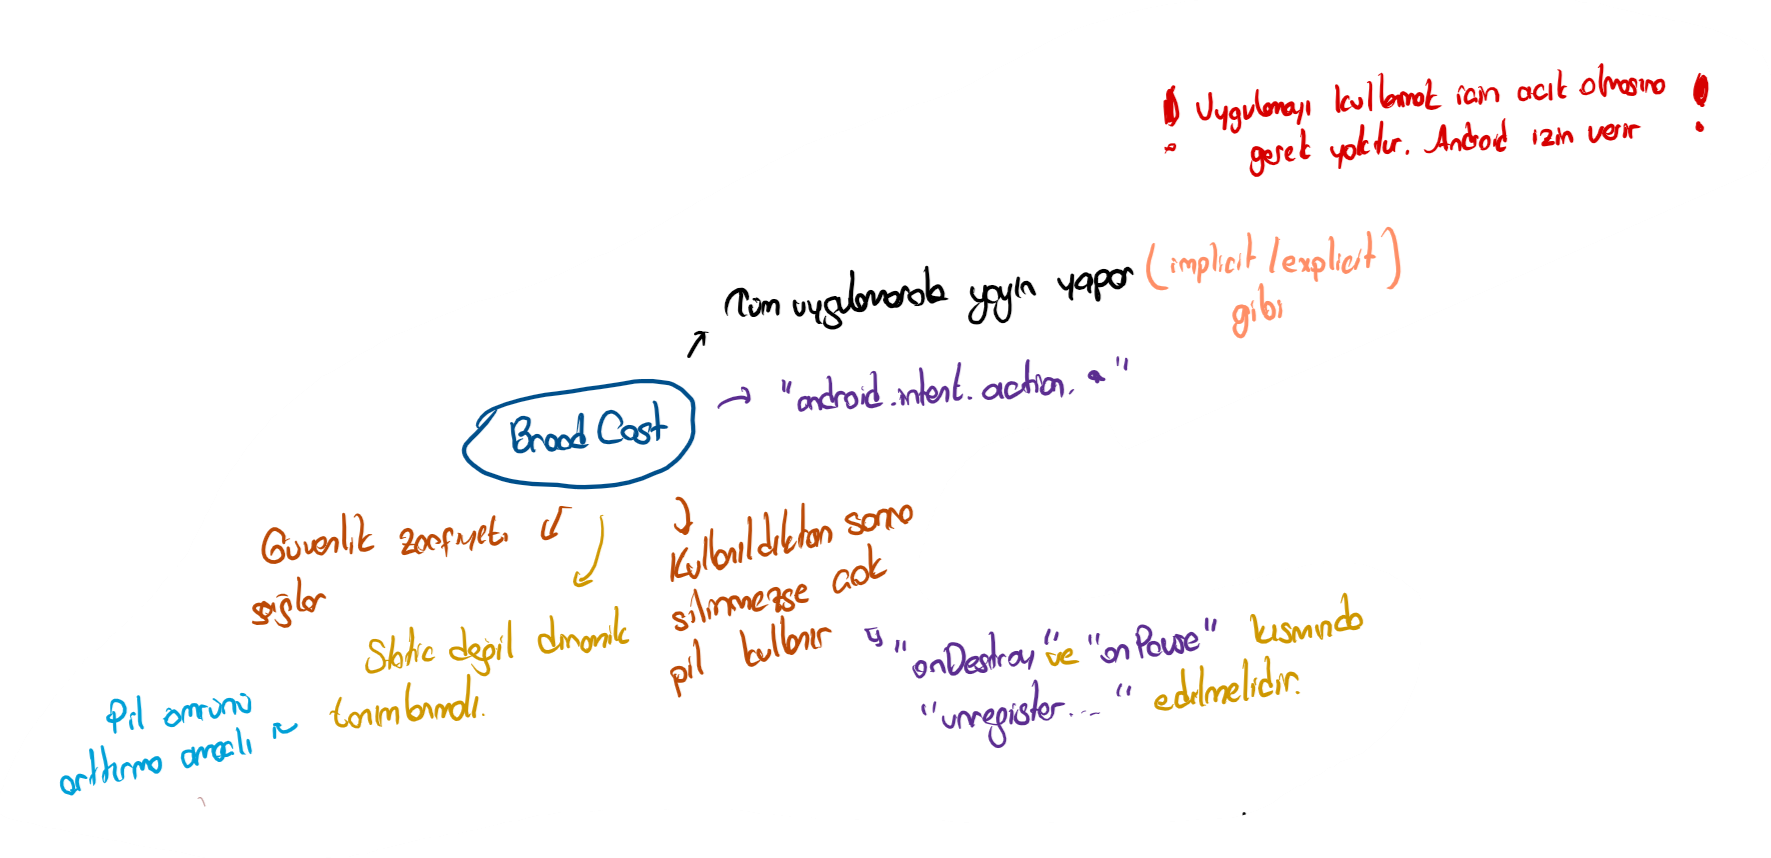 ! Uygulamayı kullanmak için açık olmasına !
gerek yoktur. Android izin verir
Tüm uygulamarala yayın yapar (implicit / explicit)
gibi
"android.intent.action.*"
Broad Cast
Güvenlik zaafiyeti
sağlar
Static değil dinamik
tanımlanmalı.
Pil ömrünü
arttırma amaçlı
Kullanıldıktan sonra
silinmezse çok
pil kullanır
"onDestroy" ve "onPause" kısmında
"unregister..." edilmelidir.